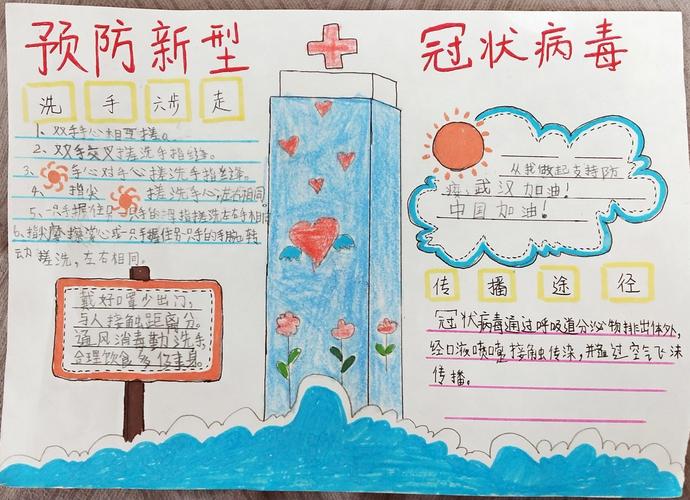 预防新型
冠状病毒
洗手六步走
1、双手心相互搓。
2、双手交叉搓洗手指缝。
3、手心对手心搓洗手指缝。
4、指尖搓洗手心,左右相同。
5、一只手握住另一只手的拇指搓洗左右手相同
6、指尖摩擦掌心或一只手握住另一只手的手腕转
动搓洗,左右相同。
戴好口罩少出门,
与人接触距离分。
通风消毒勤洗手,
合理饮食多休息。
从我做起支持防
疫,武汉加油!
中国加油!
传播途径
冠状病毒通过呼吸道分泌物排出体外,
经口液喷嚏接触传染,并通过空气飞沫
传播。